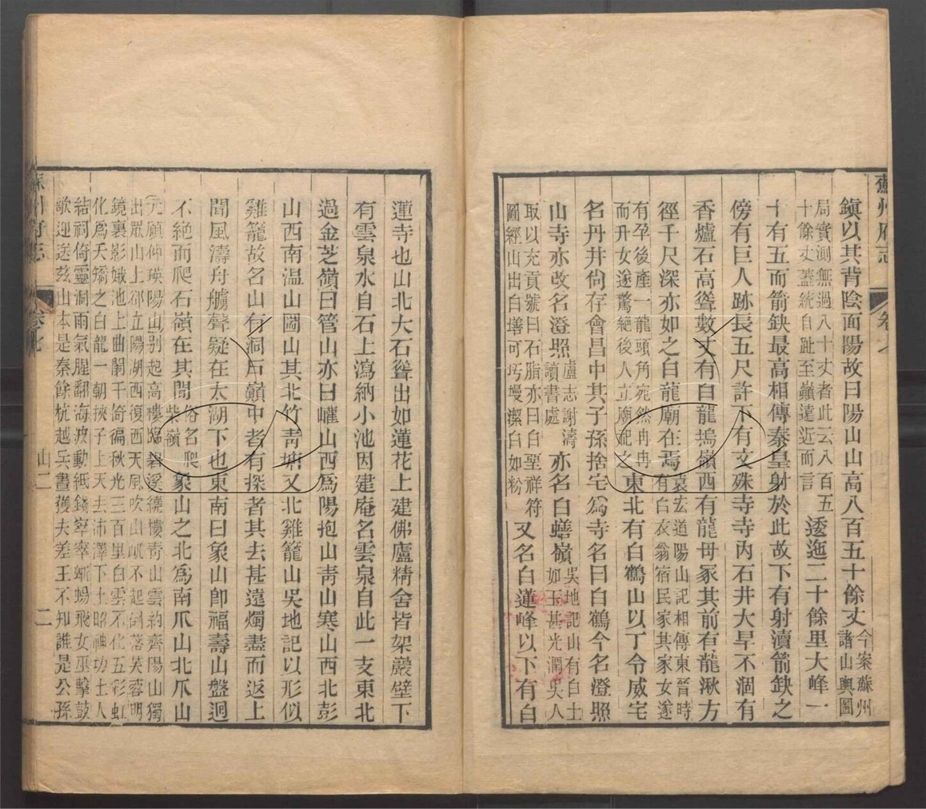 蘇州府志
卷七
鎭以其背陰面陽故曰陽山山高八百五十餘丈今案蘇州諸山輿圖
局實測無過八十丈者此云八百五十餘丈蓋統自趾至巓遠近而言逶迤二十餘里大峰一
十有五而箭缺最高相傳秦皇射於此故下有射瀆箭缺之
傍有巨人跡長五尺許下有文殊寺寺內石井大旱不涸有
香爐石高聳數丈有白龍塢嶺西有龍母冢其前有龍湫方
徑千尺深亦如之白龍廟在焉袁宏道陽山記相傳東晉時有白衣翁宿民家其家女遂
有孕後產一龍頭角宛然冉冉而升女遂驚絕後人立廟祀之東北有白鶴山以丁令威宅
名丹井尙存會昌中其子孫捨宅爲寺名曰白鶴今名澄照
山寺亦改名澄照盧志謝濤讀書處亦名白蟮嶺吳地記山有白土如玉甚光潤吳人
取以充貢號曰石脂亦曰白堊祥符圖經山出白墡可圬墁潔白如粉又名白蓮峰以下有白
蓮寺也山北大石聳出如蓮花上建佛廬精舍皆架巖壁下
有雲泉水自石上瀉納小池因建庵名雲泉自此一支東北
過金芝嶺曰管山亦曰𡾰山西爲陽抱山靑山寒山西北彭
山西南溫山國山其北竹靑塘又北雞籠山吳地記以形似
雞籠故名山有洞后嶺中者有探者其去甚遠燭盡而返上
聞風濤舟艣聲疑在太湖下也東南曰象山卽福壽山盤迴
不絕而爬石嶺在其間俗名爬柴嶺象山之北爲南爪山北爪山
元顧仲瑛陽山別起高樓臨碧溪繞樓靑山雲約齊陽山獨
出眾山上卻立陽湖西復西天風吹山屼不起倒落芙蓉明
鏡裏影娥池上曲闌干倚徧秋光三百里白雲不化五彩虹
化爲夭矯之白龍一朝挾子上天去沛澤下土昭神功土人
結祠倚靈洞雨氣腥翻海波動紙錢窣窣蜥蜴飛女巫擊鼓
歌迎送兹山本是秦餘杭越兵晝獲夫差王不知誰是公孫
蘇州府志
卷七
山二
二